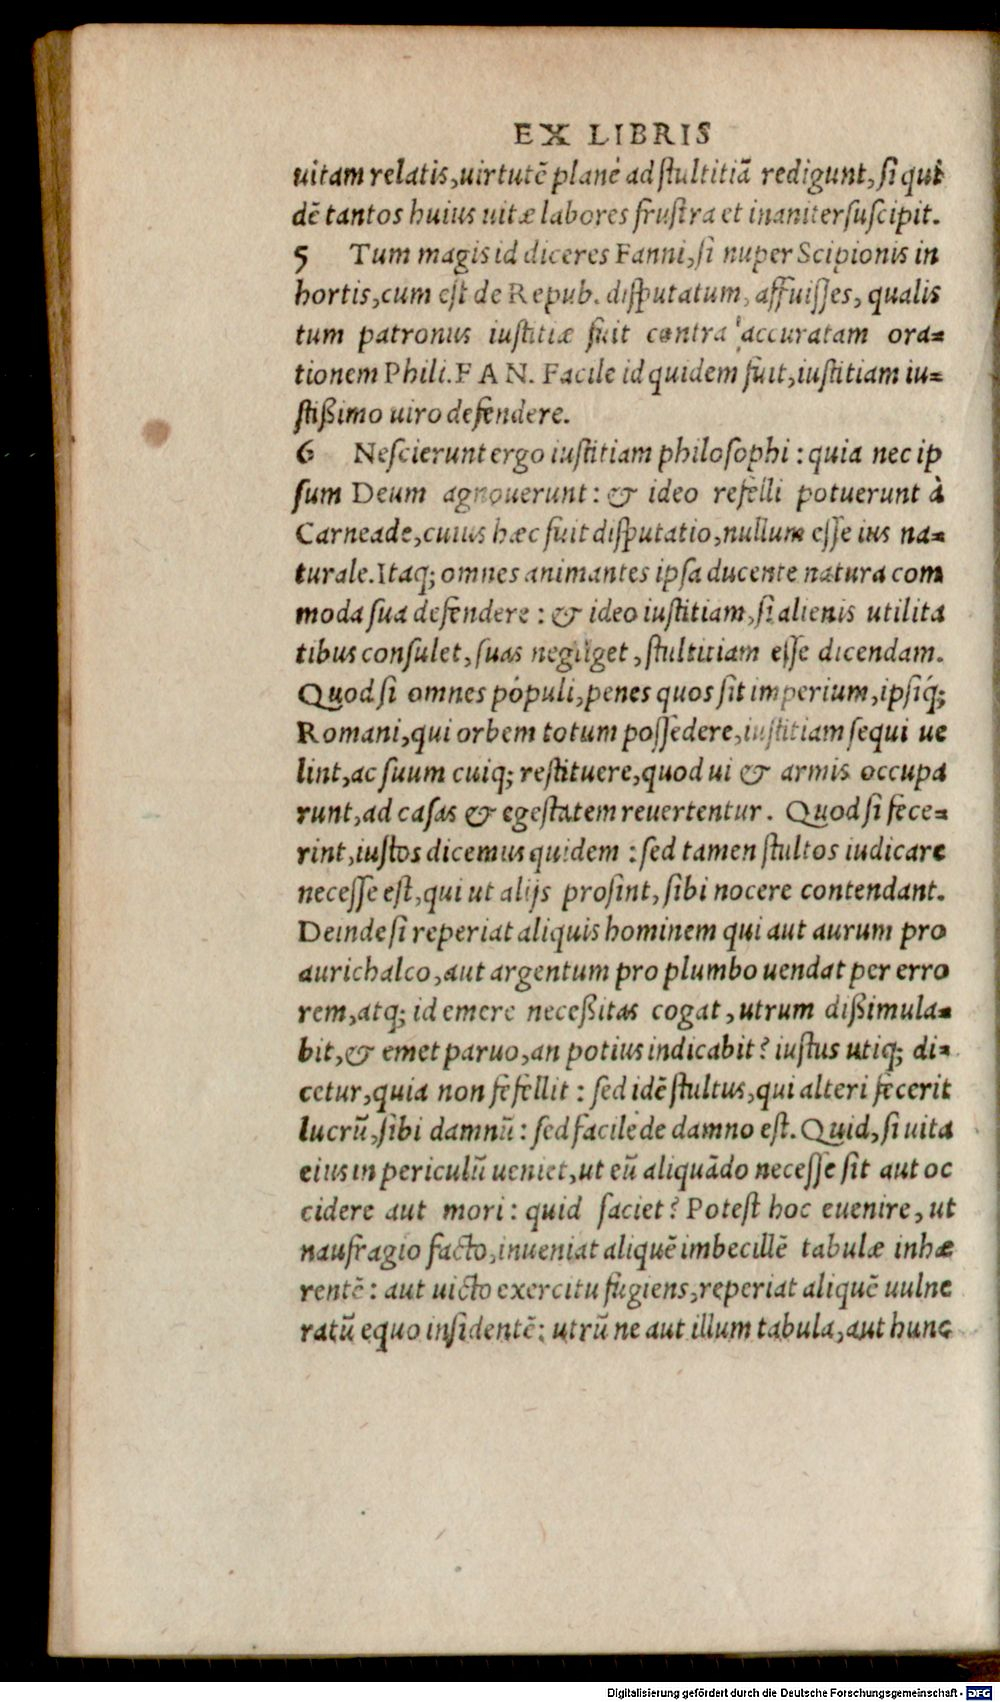 EX LIBRIS
uitam relatis, uirtutē planè ad ſtultitiā redigunt, ſi qui
dē tantos huius uitæ labores fruſtra et inaniter ſuſcipit.
5 Tum magis id diceres Fanni, ſi nuper Scipionis in
hortis, cum eſt de Repub. diſputatum, affuiſſes, qualis
tum patronus iuſtitiæ fuit contra accuratam ora=
tionem Phili. F A N. Facile id quidem fuit, iuſtitiam iu=
ſtißimo uiro defendere.
6 Neſcierunt ergo iuſtitiam philoſophi: quia nec ip
ſum Deum agnouerunt: & ideo refelli potuerunt à
Carneade, cuius hæc fuit diſputatio, nullum eſſe ius na=
turale. Itaq; omnes animantes ipſa ducente natura com
moda ſua defendere: & ideo iuſtitiam, ſi alienis utilita
tibus conſulet, ſuas negliget, ſtultitiam eſſe dicendam.
Quod ſi omnes pópuli, penes quos ſit imperium, ipſiq́;
Romani, qui orbem totum poſſedere, iuſtitiam ſequi ue
lint, ac ſuum cuiq; reſtituere, quod ui & armis occupa
runt, ad caſas & egeſtatem reuertentur. Quod ſi fece=
rint, iuſtos dicemus quidem: ſed tamen ſtultos iudicare
neceſſe eſt, qui ut alijs proſint, ſibi nocere contendant.
Deinde ſi reperiat aliquis hominem qui aut aurum pro
aurichalco, aut argentum pro plumbo uendat per erro
rem, atq; id emere neceßitas cogat, utrum dißimula=
bit, & emet paruo, an potius indicabit? iuſtus utiq; di=
cetur, quia non fefellit: ſed idē ſtultus, qui alteri fecerit
lucrū, ſibi damnū: ſed facile de damno eſt. Quid, ſi uita
eius in periculū ueniet, ut eū aliquādo neceſſe ſit aut oc
cidere aut mori: quid faciet? Poteſt hoc euenire, ut
naufragio facto, inueniat aliquē imbecillē tabulæ inhæ
rentē: aut uicto exercitu fugiens, reperiat aliquē uulne
ratū equo inſidentē: utrū ne aut illum tabula, aut hunc
Digitalisierung gefördert durch die Deutsche Forschungsgemeinschaft - DFG